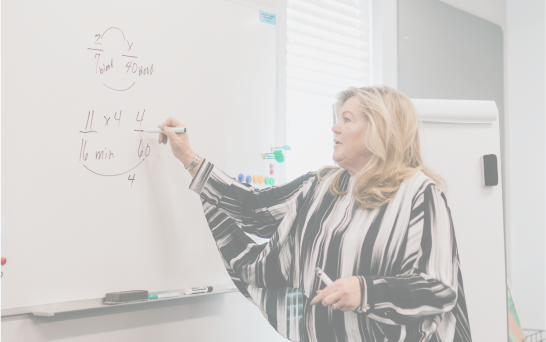 2 x
7 40
11 x4 4
16 min 60
4